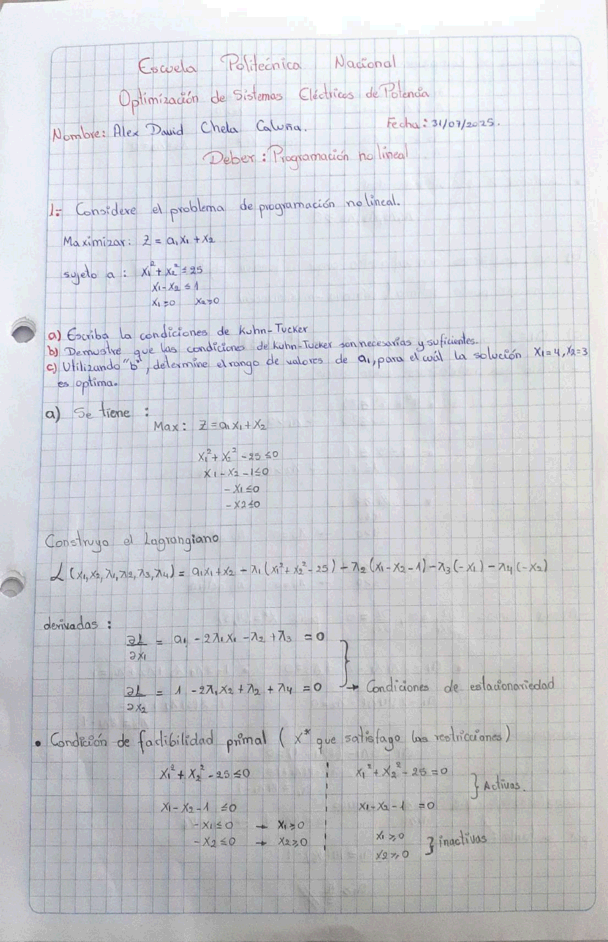 Escuela Politécnica Nacional
Optimización de Sistemas Eléctricos de Potencia
Nombre: Alex David Chela Caluña. Fecha: 31/07/2025.
Deber: Programación no lineal
1.- Considere el problema de programación no lineal.
Maximizar: Z = a₁x₁ + x₂
sujeto a: x₁² + x₂² ≤ 25
x₁ - x₂ ≤ 1
x₁ ≥ 0 x₂ ≥ 0
a) Escriba la condiciones de Kuhn-Tucker
b) Demuestre que las condiciones de Kuhn-Tucker son necesarias y suficientes.
c) Utilizando "b", determine el rango de valores de a₁, para el cuál la solución x₁ = 4, x₂ = 3
es optima.
a) Se tiene:
Max: Z = a₁x₁ + x₂
x₁² + x₂² - 25 ≤ 0
x₁ - x₂ - 1 ≤ 0
-x₁ ≤ 0
-x₂ ≤ 0
Construyo el Lagrangiano
L (x₁, x₂, λ₁, λ₂, λ₃, λ₄) = a₁x₁ + x₂ - λ₁(x₁² + x₂² - 25) - λ₂(x₁ - x₂ - 1) - λ₃(-x₁) - λ₄(-x₂)
derivadas:
∂L/∂x₁ = a₁ - 2λ₁x₁ - λ₂ + λ₃ = 0
∂L/∂x₂ = 1 - 2λ₁x₂ + λ₂ + λ₄ = 0 } → Condiciones de estacionariedad
• Condición de factibilidad primal (x* que satisfaga las restricciones)
x₁² + x₂² - 25 ≤ 0 x₁² + x₂² - 25 = 0
x₁ - x₂ - 1 ≤ 0 x₁ - x₂ - 1 = 0 } Activas.
-x₁ ≤ 0 → x₁ ≥ 0 x₁ ≥ 0
-x₂ ≤ 0 → x₂ ≥ 0 x₂ ≥ 0 } inactivas